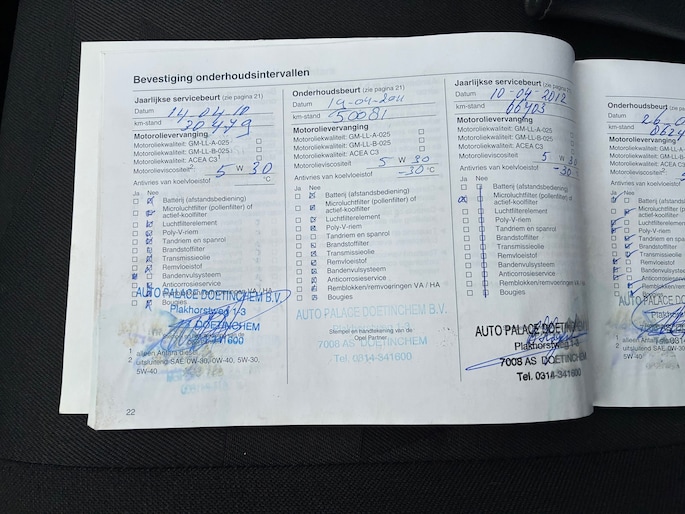 Bevestiging onderhoudsintervallen
Jaarlijkse servicebeurt (zie pagina 21)
Datum 14-04-10
km-stand 20479
Motorolievervanging
Motoroliekwaliteit: GM-LL-A-025
Motoroliekwaliteit: GM-LL-B-025
Motoroliekwaliteit: ACEA C3
Motorolieviscositeit2: 5 W 30
Antivries van koelvloeistof °C
Ja Nee
Batterij (afstandsbediening)
Microluchtfilter (pollenfilter) of
actief-koolfilter
Luchtfilterelement
Poly-V-riem
Tandriem en spanrol
Brandstoffilter
Transmissieolie
Remvloeistof
Bandenvulsysteem
Anticorrosieservice
VA / HA
Bougies
AUTO PALACE DOETINCHEM B.V.
Plakhorstweg 1-3
DOETINCHEM
1 alleen Antara diesel
2 uitsluitend SAE 0W-30, 0W-40, 5W-30,
5W-40
22
Onderhoudsbeurt (zie pagina 21)
Datum 19-04-2011
km-stand 50081
Motorolievervanging
Motoroliekwaliteit: GM-LL-A-025
Motoroliekwaliteit: GM-LL-B-025
Motoroliekwaliteit: ACEA C3
Motorolieviscositeit 5 W 30
Antivries van koelvloeistof -30 °C
Ja Nee
Batterij (afstandsbediening)
Microluchtfilter (pollenfilter) of
actief-koolfilter
Luchtfilterelement
Poly-V-riem
Tandriem en spanrol
Brandstoffilter
Transmissieolie
Remvloeistof
Bandenvulsysteem
Anticorrosieservice
Remblokken/remvoeringen VA / HA
Bougies
AUTO PALACE DOETINCHEM B.V.
Plakhorstweg 1-3
Stempel en handtekening van de
Opel Partner
7008 AS DOETINCHEM
Tel. 0314-341600
Jaarlijkse servicebeurt (zie pagina 21)
Datum 10-04-2012
km-stand 66403
Motorolievervanging
Motoroliekwaliteit: GM-LL-A-025
Motoroliekwaliteit: GM-LL-B-025
Motoroliekwaliteit: ACEA C3
Motorolieviscositeit 5 W 30
Antivries van koelvloeistof -30
Ja Nee
Batterij (afstandsbediening)
Microluchtfilter (pollenfilter) of
actief-koolfilter
Luchtfilterelement
Poly-V-riem
Tandriem en spanrol
Brandstoffilter
Transmissieolie
Remvloeistof
Bandenvulsysteem
Anticorrosieservice
Remblokken/remvoeringen VA / HA
Bougies
AUTO PALACE DOETINCHEM
Plakhorstweg 1-3
7008 AS DOETINCHEM
Tel. 0314-341600
Onderhoudsbeurt (zie pagina 21)
Datum
km-stand
Motorolievervanging
Motoroliekwaliteit: GM-LL-A-025
Motoroliekwaliteit: GM-LL-B-025
Motoroliekwaliteit: ACEA C3
Motorolieviscositeit
Antivries van koelvloeistof
Ja Nee
Batterij (afstandsbediening)
Microluchtfilter (pollenfilter) of
actief-koolfilter
Luchtfilterelement
Poly-V-riem
Tandriem en spanrol
Brandstoffilter
Transmissieolie
Remvloeistof
Bandenvulsysteem
Anticorrosieservice
Bougies
AUTO PALACE